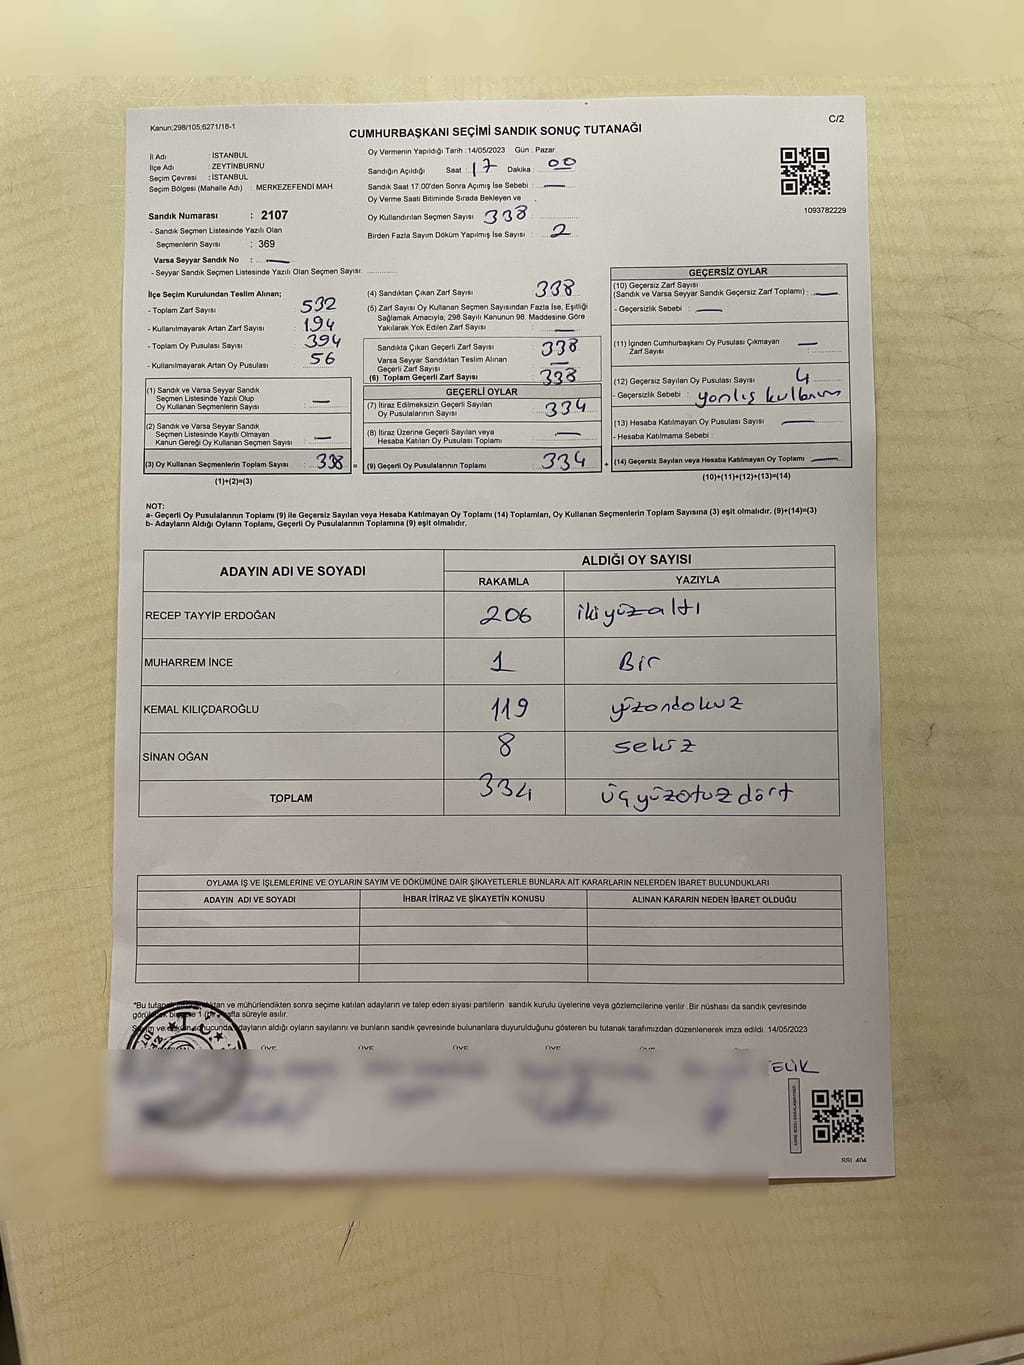 Kanun;298/105;6271/18-1
C/2
CUMHURBAŞKANI SEÇİMİ SANDIK SONUÇ TUTANAĞI
İl Adı : İSTANBUL
İlçe Adı : ZEYTİNBURNU
Seçim Çevresi : İSTANBUL
Seçim Bölgesi (Mahalle Adı) : MERKEZEFENDİ MAH.
Sandık Numarası : 2107
- Sandık Seçmen Listesinde Yazılı Olan
Seçmenlerin Sayısı : 369
Varsa Seyyar Sandık No : —
- Seyyar Sandık Seçmen Listesinde Yazılı Olan Seçmen Sayısı
Oy Vermenin Yapıldığı Tarih : 14/05/2023 Gün : Pazar
Sandığın Açıldığı Saat : 17 Dakika : 00
Sandık Saat 17:00'den Sonra Açımış İse Sebebi : —
Oy Verme Saati Bitiminde Sırada Bekleyen ve
Oy Kullandırılan Seçmen Sayısı 338
Birden Fazla Sayım Döküm Yapılmış İse Sayısı : 2
1093782229
İlçe Seçim Kurulundan Teslim Alınan;
- Toplam Zarf Sayısı : 532
- Kullanılmayarak Artan Zarf Sayısı : 194
- Toplam Oy Pusulası Sayısı : 394
- Kullanılmayarak Artan Oy Pusulası : 56
(1) Sandık ve Varsa Seyyar Sandık
Seçmen Listesinde Yazılı Olup
Oy Kullanan Seçmenlerin Sayısı : —
(2) Sandık ve Varsa Seyyar Sandık
Seçmen Listesinde Kayıtlı Olmayan
Kanun Gereği Oy Kullanan Seçmen Sayısı : —
(3) Oy Kullanan Seçmenlerin Toplam Sayısı : 338
(1)+(2)=(3)
(4) Sandıktan Çıkan Zarf Sayısı : 338
(5) Zarf Sayısı Oy Kullanan Seçmen Sayısından Fazla İse, Eşitliği
Sağlamak Amacıyla; 298 Sayılı Kanunun 98. Maddesine Göre
Yakılarak Yok Edilen Zarf Sayısı : —
Sandıkta Çıkan Geçerli Zarf Sayısı : 338
Varsa Seyyar Sandıktan Teslim Alınan
Geçerli Zarf Sayısı : —
(6) Toplam Geçerli Zarf Sayısı : 338
GEÇERLİ OYLAR
(7) İtiraz Edilmeksizin Geçerli Sayılan
Oy Pusulalarının Sayısı : 334
(8) İtiraz Üzerine Geçerli Sayılan veya
Hesaba Katılan Oy Pusulası Toplamı : —
(9) Geçerli Oy Pusulalarının Toplamı : 334
GEÇERSİZ OYLAR
(10) Geçersiz Zarf Sayısı
(Sandık ve Varsa Seyyar Sandık Geçersiz Zarf Toplamı) : —
- Geçersizlik Sebebi : —
(11) İçinden Cumhurbaşkanı Oy Pusulası Çıkmayan
Zarf Sayısı : —
(12) Geçersiz Sayılan Oy Pusulası Sayısı : 4
- Geçersizlik Sebebi : yanlış kullanım
(13) Hesaba Katılmayan Oy Pusulası Sayısı : —
- Hesaba Katılmama Sebebi :
(14) Geçersiz Sayılan veya Hesaba Katılmayan Oy Toplamı : —
(10)+(11)+(12)+(13)=(14)
NOT:
a- Geçerli Oy Pusulalarının Toplamı (9) ile Geçersiz Sayılan veya Hesaba Katılmayan Oy Toplamı (14) Toplamları, Oy Kullanan Seçmenlerin Toplam Sayısına (3) eşit olmalıdır. (9)+(14)=(3)
b- Adayların Aldığı Oyların Toplamı, Geçerli Oy Pusulalarının Toplamına (9) eşit olmalıdır.
ADAYIN ADI VE SOYADI
ALDIĞI OY SAYISI
RAKAMLA YAZIYLA
RECEP TAYYİP ERDOĞAN 206 ikiyüzaltı
MUHARREM İNCE 1 Bir
KEMAL KILIÇDAROĞLU 119 yüzondokuz
SİNAN OĞAN 8 sekiz
TOPLAM 334 üçyüzotuzdört
OYLAMA İŞ VE İŞLEMLERİNE VE OYLARIN SAYIM VE DÖKÜMÜNE DAİR ŞİKAYETLERLE BUNLARA AİT KARARLARIN NELERDEN İBARET BULUNDUKLARI
ADAYIN ADI VE SOYADI İHBAR İTİRAZ VE ŞİKAYETİN KONUSU ALINAN KARARIN NEDEN İBARET OLDUĞU
*Bu ve mühürlendikten sonra seçime katılan adayların ve talep eden siyasi partilerin sandık kurulu üyelerine veya gözlemcilerine verilir .Bir nüshası da sandık çevresinde
1 süreyle asılır.
adayların aldığı oyların sayılarını ve bunların sandık çevresinde bulunanlara duyurulduğunu gösteren bu tutanak tarafımızdan düzenlenerek imza edildi. 14/05/2023
ÜYE ÜYE ÜYE ÜYE ÜYE
T.C.
ELİK